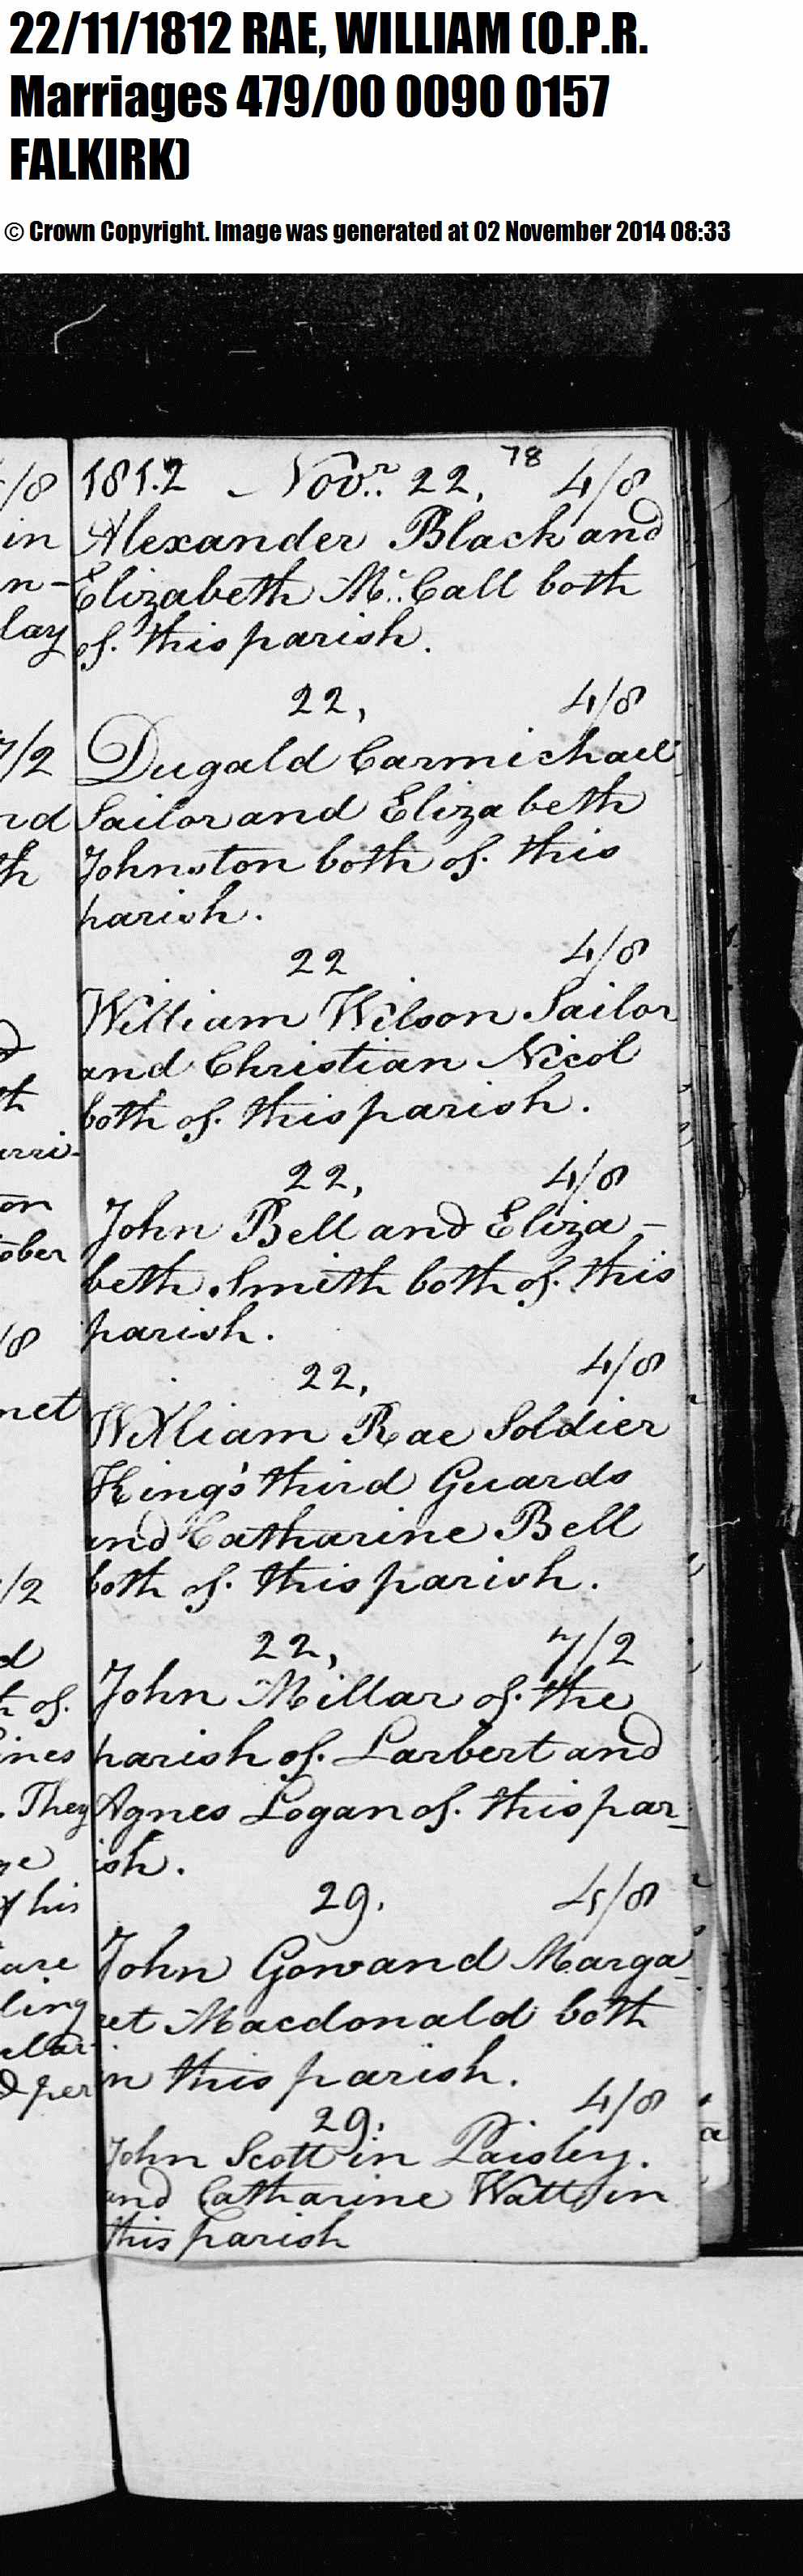 22/11/1812 RAE, WILLIAM (O.P.R.
Marriages 479/00 0090 0157
FALKIRK)
© Crown Copyright. Image was generated at 02 November 2014 08:33
78
1812 - Novr. 22, 4/8
Alexander Black and
Elizabeth Mc. Call both
of this parish.
22, 4/8
Dugald Carmichael
Sailor and Elizabeth
Johnston both of this
parish.
22 4/8
William Wilson Sailor
and Christian Nicol
both of this parish.
22, 4/8
John Bell and Eliza-
beth Smith both of this
parish.
22, 4/8
William Rae Soldier
King's third Guards
and Catharine Bell
both of this parish.
22, 7/2
John Millar of the
parish of Larbert and
Agnes Logan of this par-
ish.
29. 4/8
John Gow and Marga-
ret Macdonald both
in this parish.
29. 4/8
John Scott in Paisley.
and Catharine Watt in
this parish